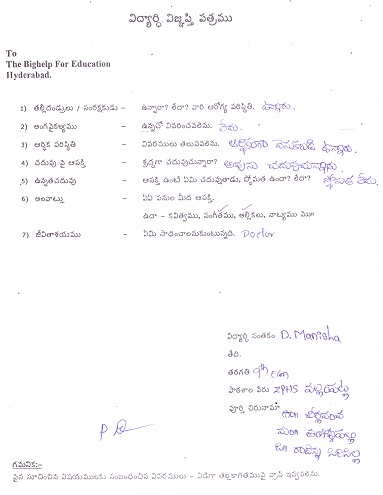 విద్యార్థి విజ్ఞప్తి పత్రము
To
The Bighelp For Education
Hyderabad.
1) తల్లిదండ్రులు / సంరక్షకుడు – ఉన్నారా? లేదా? వారి ఆరోగ్య పరిస్థితి. ఉన్నారు.
2) అంగవైకల్యము – ఉన్నచో వివరించవలెను. లేదు.
3) ఆర్థిక పరిస్థితి – వివరములు తెలుపవలెను. ఆర్థికంగా వెనుకబడి ఉన్నారు.
4) చదువు పై ఆసక్తి – శ్రద్ధగా చదువుచున్నారా? అవును చదువుచున్నారు.
5) ఉన్నతచదువు – ఆసక్తి ఉంటే ఏమి చదువుతాడు, స్థోమత ఉందా? లేదా? స్థోమత లేదు.
6) అలవాట్లు – ఏఏ పనుల మీద ఆసక్తి.
ఉదా – కవిత్వము, సంగీతము, అల్లికలు, నాట్యము మొ॥
7) జీవితాశయము – ఏమి సాధించాలనుకుంటున్నది. Doctor
విద్యార్థి సంతకం D. Manisha
తేది.
తరగతి 9th
పాఠశాల పేరు ZPHS
పూర్తి చిరునామా
గమనిక:-
పైన సూచించిన విషయములకు సంబంధించిన వివరములు – విడిగా తెల్లకాగితముపై వ్రాసి ఇవ్వవలెను.